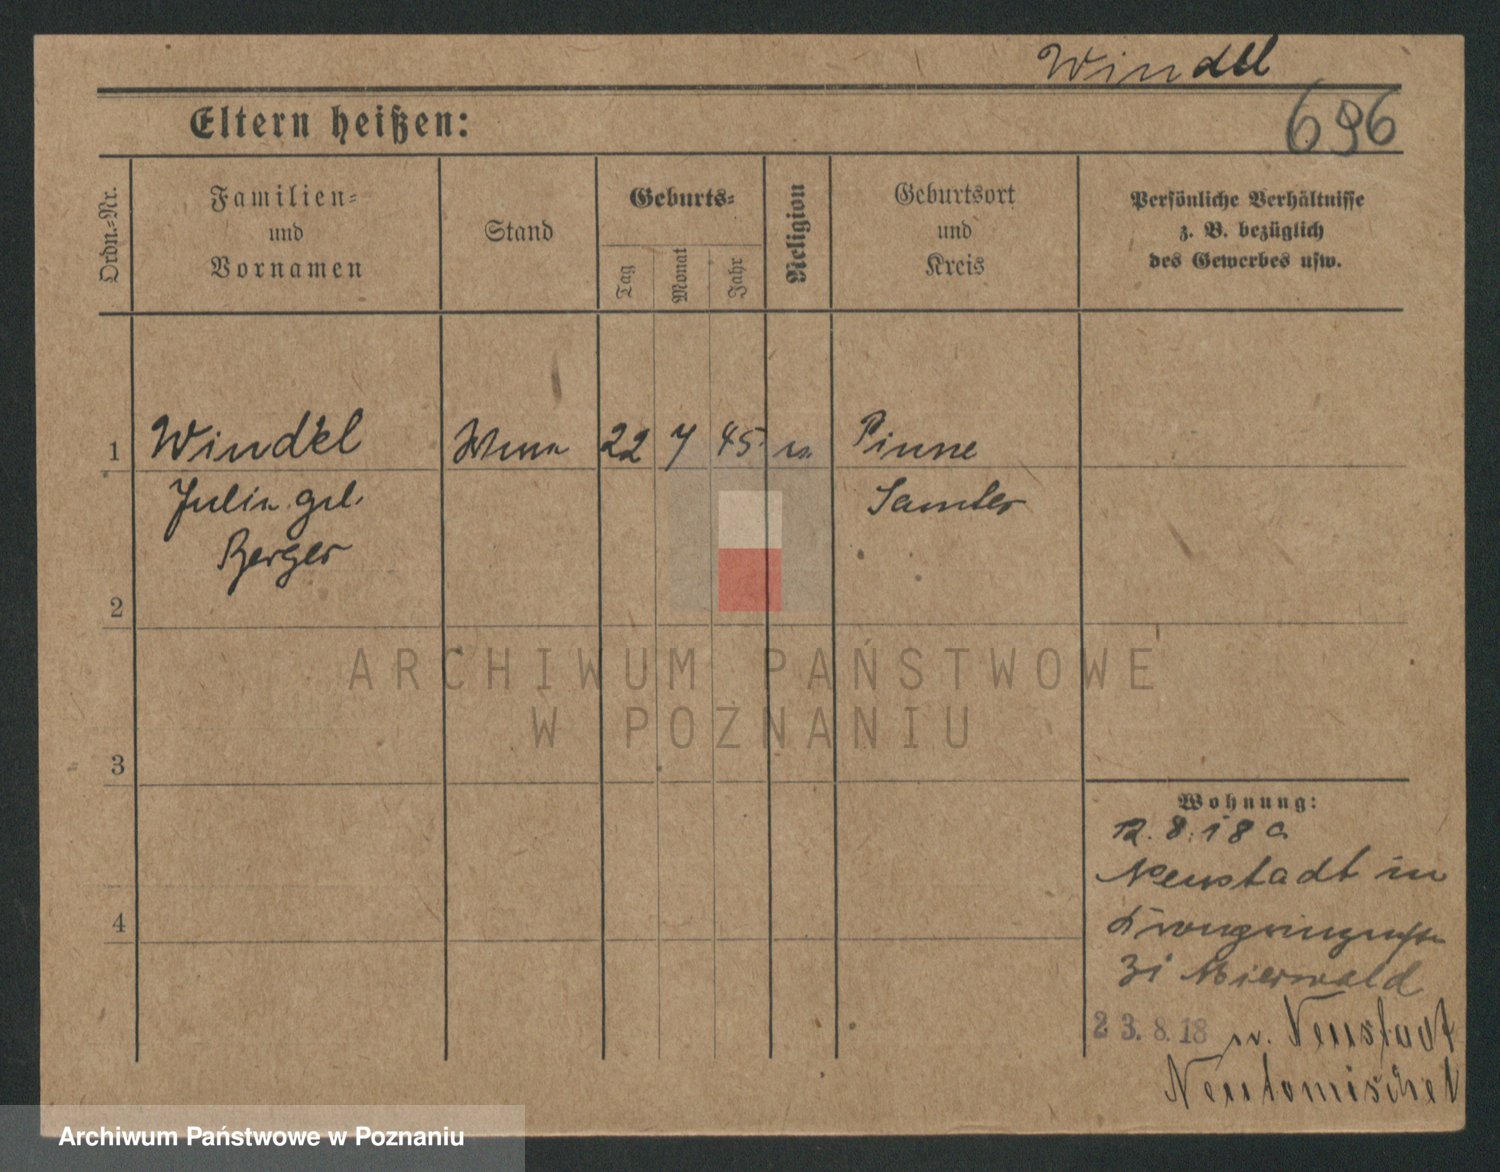 Windel
696
Eltern heißen:
Ordn.-Nr.
Familien-
und
Vornamen
Stand
Geburts-
Tag
Monat
Jahr
Religion
Geburtsort
und
Kreis
Persönliche Verhältnisse
z. B. bezüglich
des Gewerbes usw.
1 Windel 22 7 45 Pinne
Julia geb. Samter
Berger
2
ARCHIWUM PAŃSTWOWE
W POZNANIU
3
Wohnung:
12. 8. 18 a
Neustadt in
4
zi
23. 8. 18 n. Neustadt
Neutomischel
Archiwum Państwowe w Poznaniu